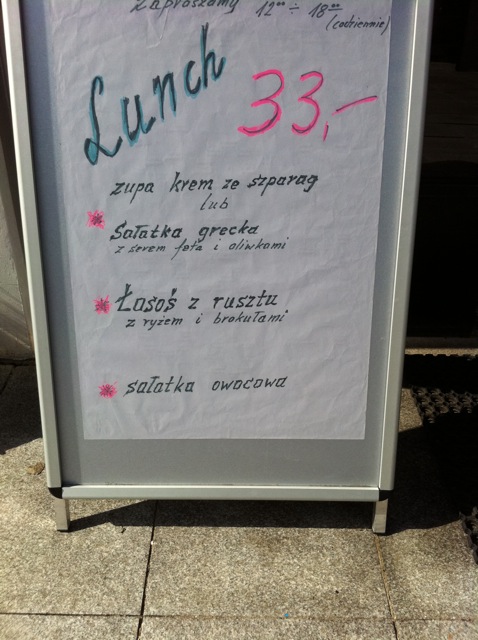 Zapraszamy 12⁰⁰ ÷ 18⁰⁰
(codziennie)
Lunch 33,-
zupa krem ze szparag
lub
Sałatka grecka
z serem feta i oliwkami
Łosoś z rusztu
z ryżem i brokułami
sałatka owocowa